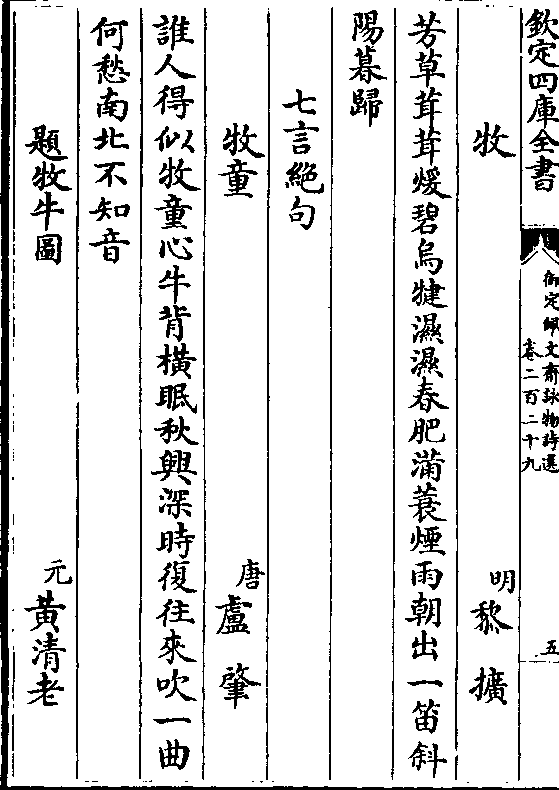 欽定四庫全書
御定佩文齋詠物詩選
卷二百二十九
五
牧
明 黎擴
芳草茸茸煖碧烏犍濕濕春肥滿蓑煙雨朝出一笛斜
陽暮歸
七言絶句
牧童
唐 盧肇
誰人得似牧童心牛背橫眠秋興深時復往來吹一曲
何愁南北不知音
題牧牛圖
元 黃清老